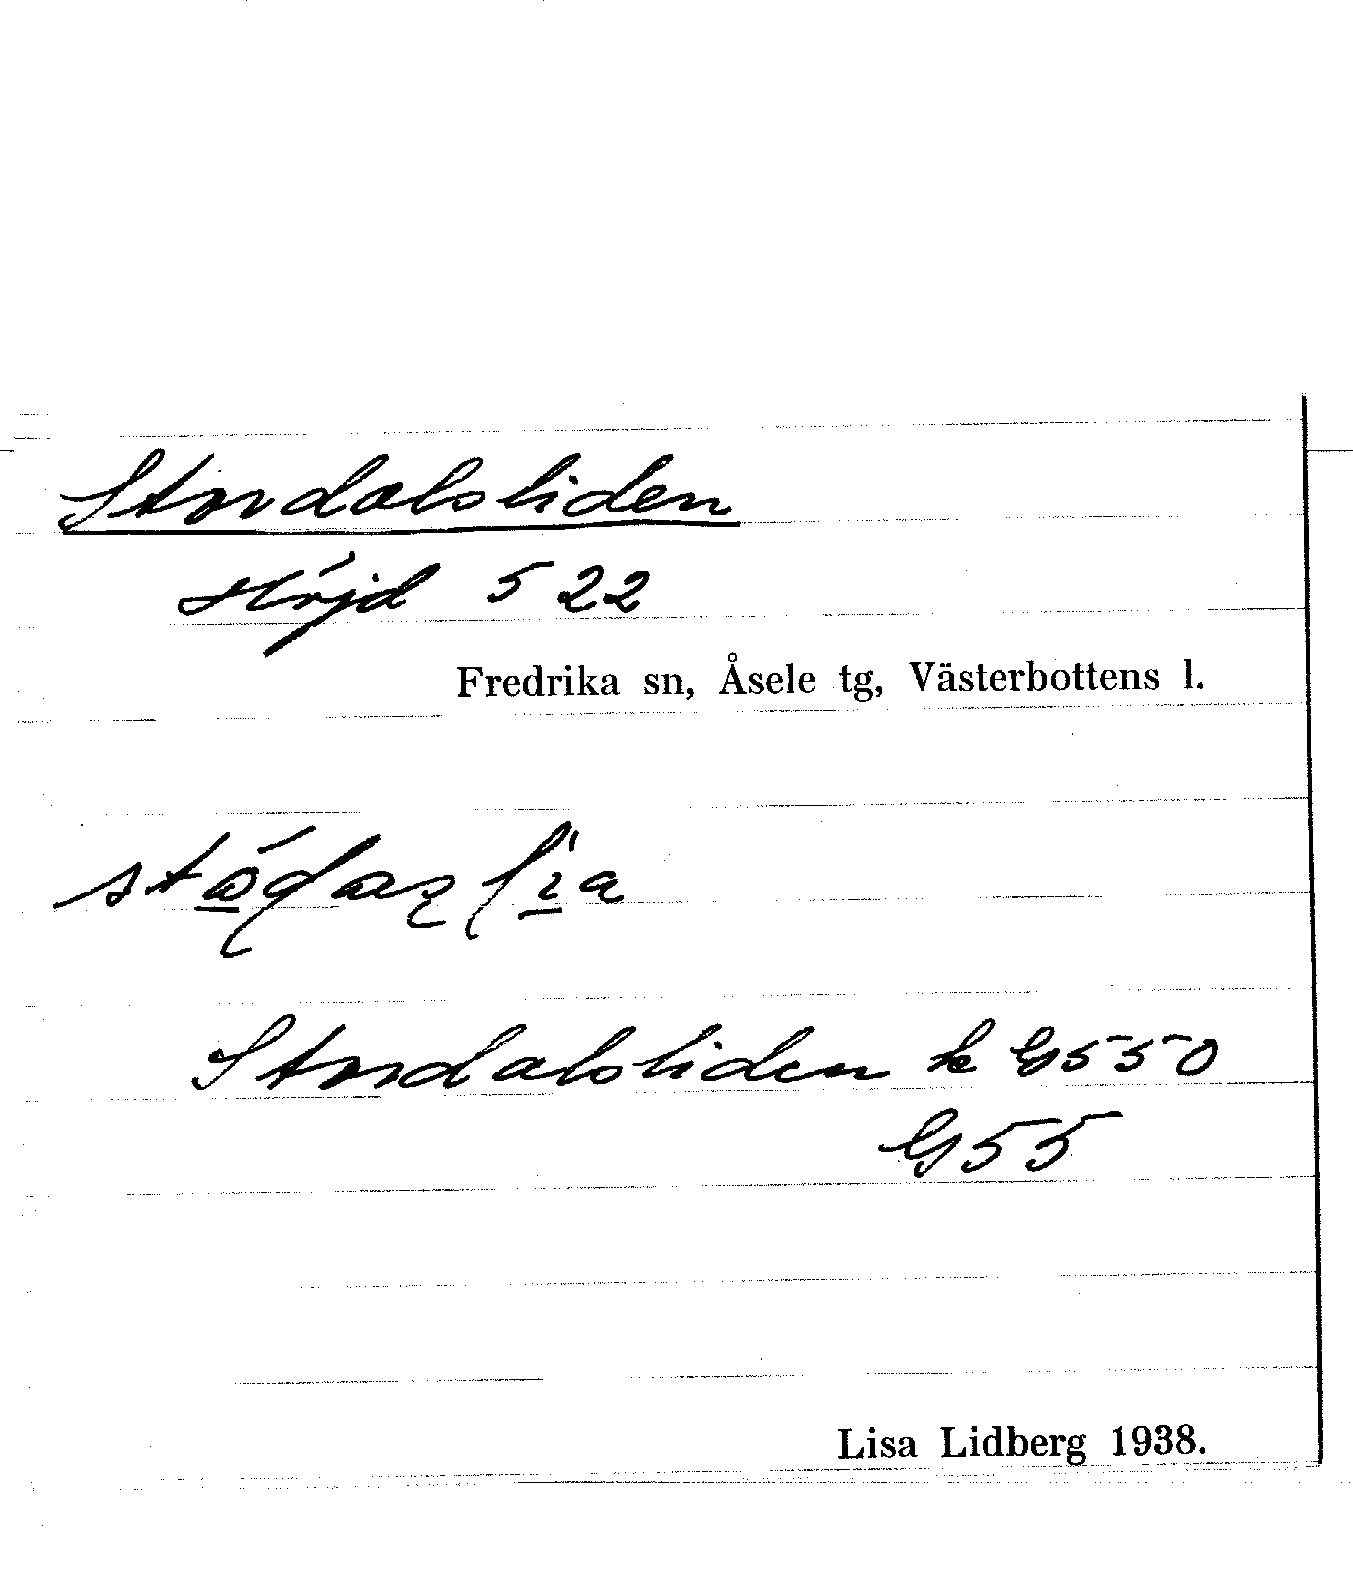 Stordalsliden
Höjd 522
Fredrika sn, Åsele tg, Västerbottens l.
Stordalsliden k G550
G55
Lisa Lidberg 1938.